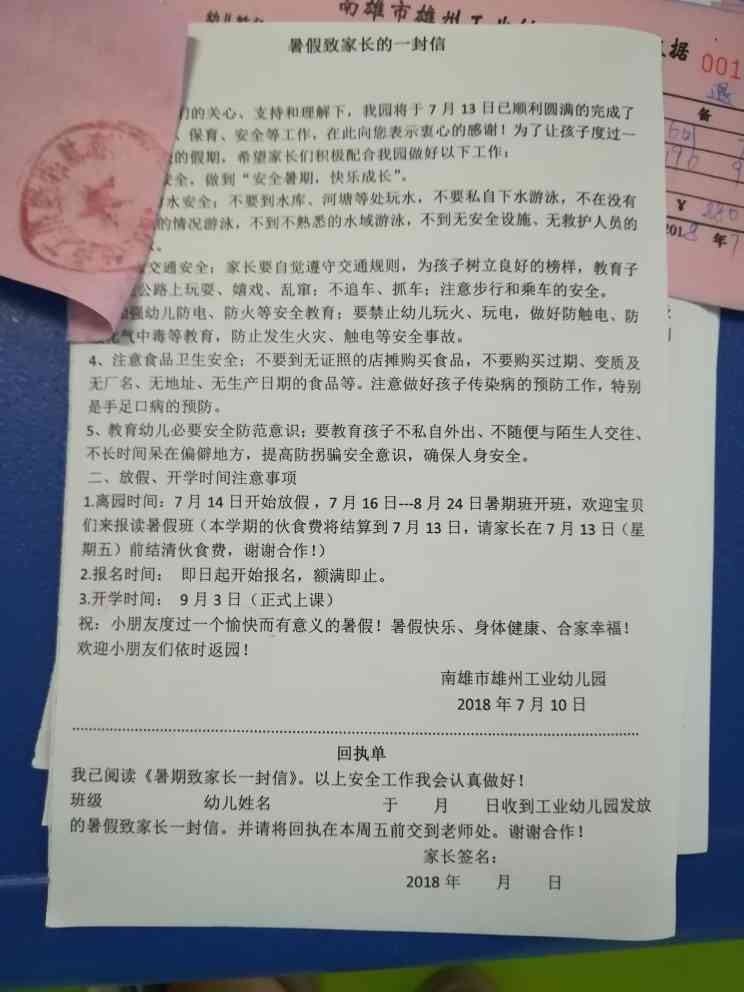 南雄市雄州工业幼
幼儿姓名
据 001
备
¥ 880
2018 年 7
暑假致家长的一封信
们的关心、支持和理解下，我园将于 7 月 13 日已顺利圆满的完成了
、保育、安全等工作，在此向您表示衷心的感谢！为了让孩子度过一
的假期，希望家长们积极配合我园做好以下工作：
安全，做到“安全暑期，快乐成长”。
水安全：不要到水库、河塘等处玩水，不要私自下水游泳，不在没有
的情况游泳，不到不熟悉的水域游泳，不到无安全设施、无救护人员的
交通安全：家长要自觉遵守交通规则，为孩子树立良好的榜样，教育子
公路上玩耍、嬉戏、乱窜；不追车、抓车；注意步行和乘车的安全。
强幼儿防电、防火等安全教育；要禁止幼儿玩火、玩电，做好防触电、防
气中毒等教育，防止发生火灾、触电等安全事故。
4、注意食品卫生安全；不要到无证照的店摊购买食品，不要购买过期、变质及
无厂名、无地址、无生产日期的食品等。注意做好孩子传染病的预防工作，特别
是手足口病的预防。
5、教育幼儿必要安全防范意识；要教育孩子不私自外出、不随便与陌生人交往、
不长时间呆在偏僻地方，提高防拐骗安全意识，确保人身安全。
二、放假、开学时间注意事项
1.离园时间：7 月 14 日开始放假 ，7 月 16 日---8 月 24 日暑期班开班，欢迎宝贝
们来报读暑假班（本学期的伙食费将结算到 7 月 13 日，请家长在 7 月 13 日（星
期五）前结清伙食费，谢谢合作！）
2.报名时间： 即日起开始报名，额满即止。
3.开学时间： 9 月 3 日（正式上课）
祝：小朋友度过一个愉快而有意义的暑假！暑假快乐、身体健康、合家幸福！
欢迎小朋友们依时返园！
南雄市雄州工业幼儿园
2018 年 7 月 10 日
回执单
我已阅读《暑期致家长一封信》。以上安全工作我会认真做好！
班级 幼儿姓名 于 月 日收到工业幼儿园发放
的暑假致家长一封信。并请将回执在本周五前交到老师处。谢谢合作！
家长签名：
2018 年 月 日